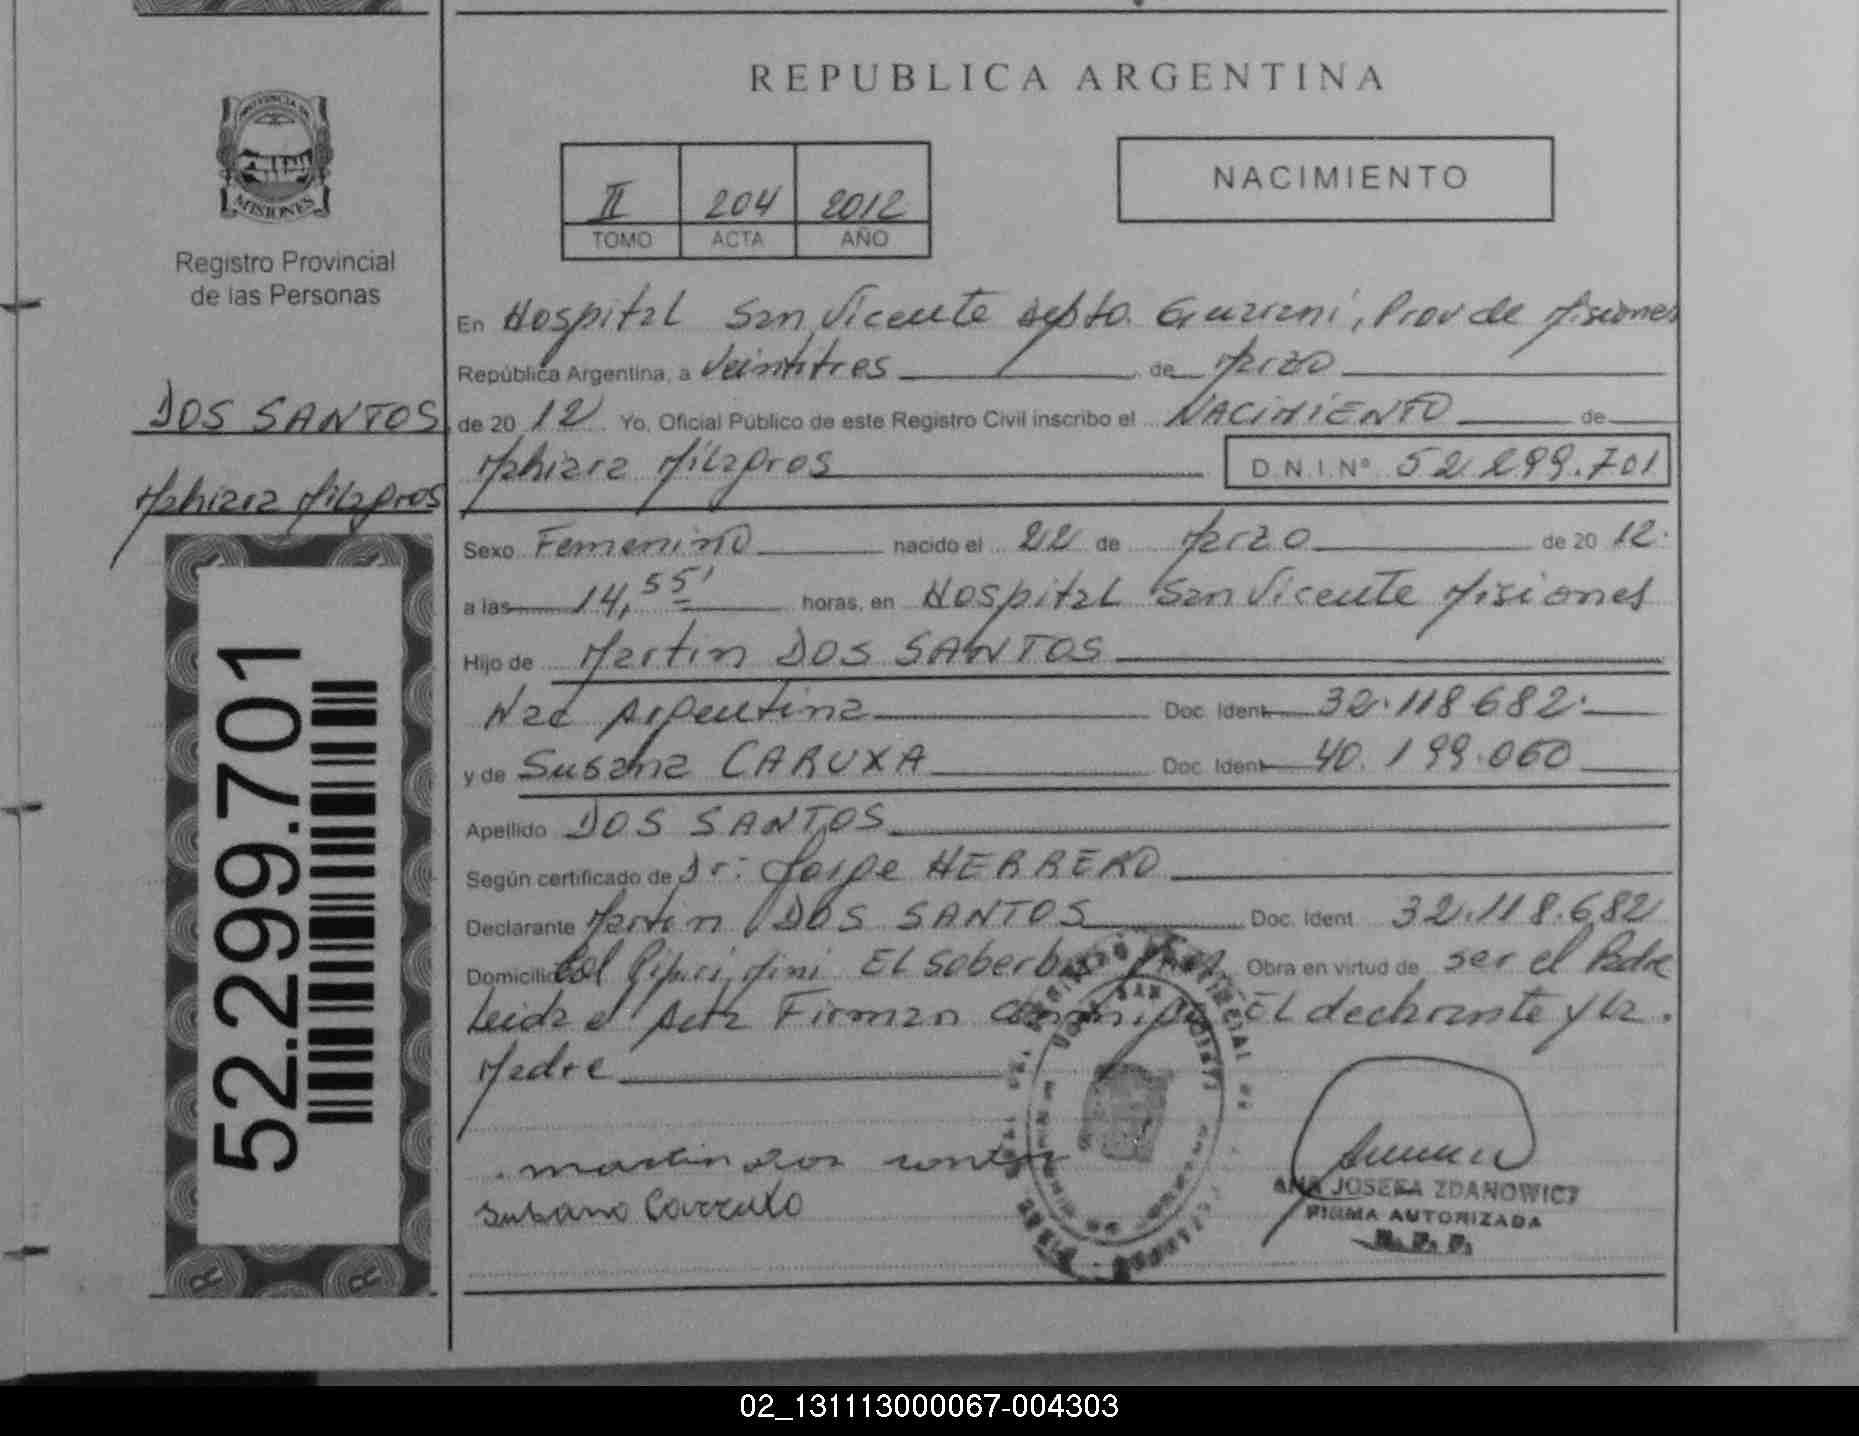 REPUBLICA ARGENTINA
PROVINCIA DE
MISIONES
Registro Provincial
de las Personas
II 204 2012
TOMO ACTA AÑO
NACIMIENTO
En Hospital San Vicente depto. Guarani, Prov de Misiones
República Argentina, a Veintitres de Marzo
DOS SANTOS
de 20 12 Yo, Oficial Público de este Registro Civil inscribo el NACIMIENTO de
Mahiara Milagros
Mahiara Milagros D.N.I.Nº 52.299.701
Sexo Femenino nacido el 22 de Marzo de 20 12.
a las 14,55' horas, en Hospital San Vicente Misiones
Hijo de Martin DOS SANTOS
Nac Argentina Doc. Ident. 32.118682.
y de Susana CARUXA Doc. Ident. 40.199.060
Apellido DOS SANTOS
Según certificado de Dr: Jorge HERRERO
Declarante Martin DOS SANTOS Doc. Ident. 32.118.682
Domicilio Col Pepiri Mini El Soberbio Obra en virtud de ser el Padre
Leida el Acta Firman Conmigo El declarante y la
Madre
martin dos
Susana
ANA JOSEFA ZDANOWICZ
FIRMA AUTORIZADA
R. P. P.
52.299.701
02_131113000067-004303